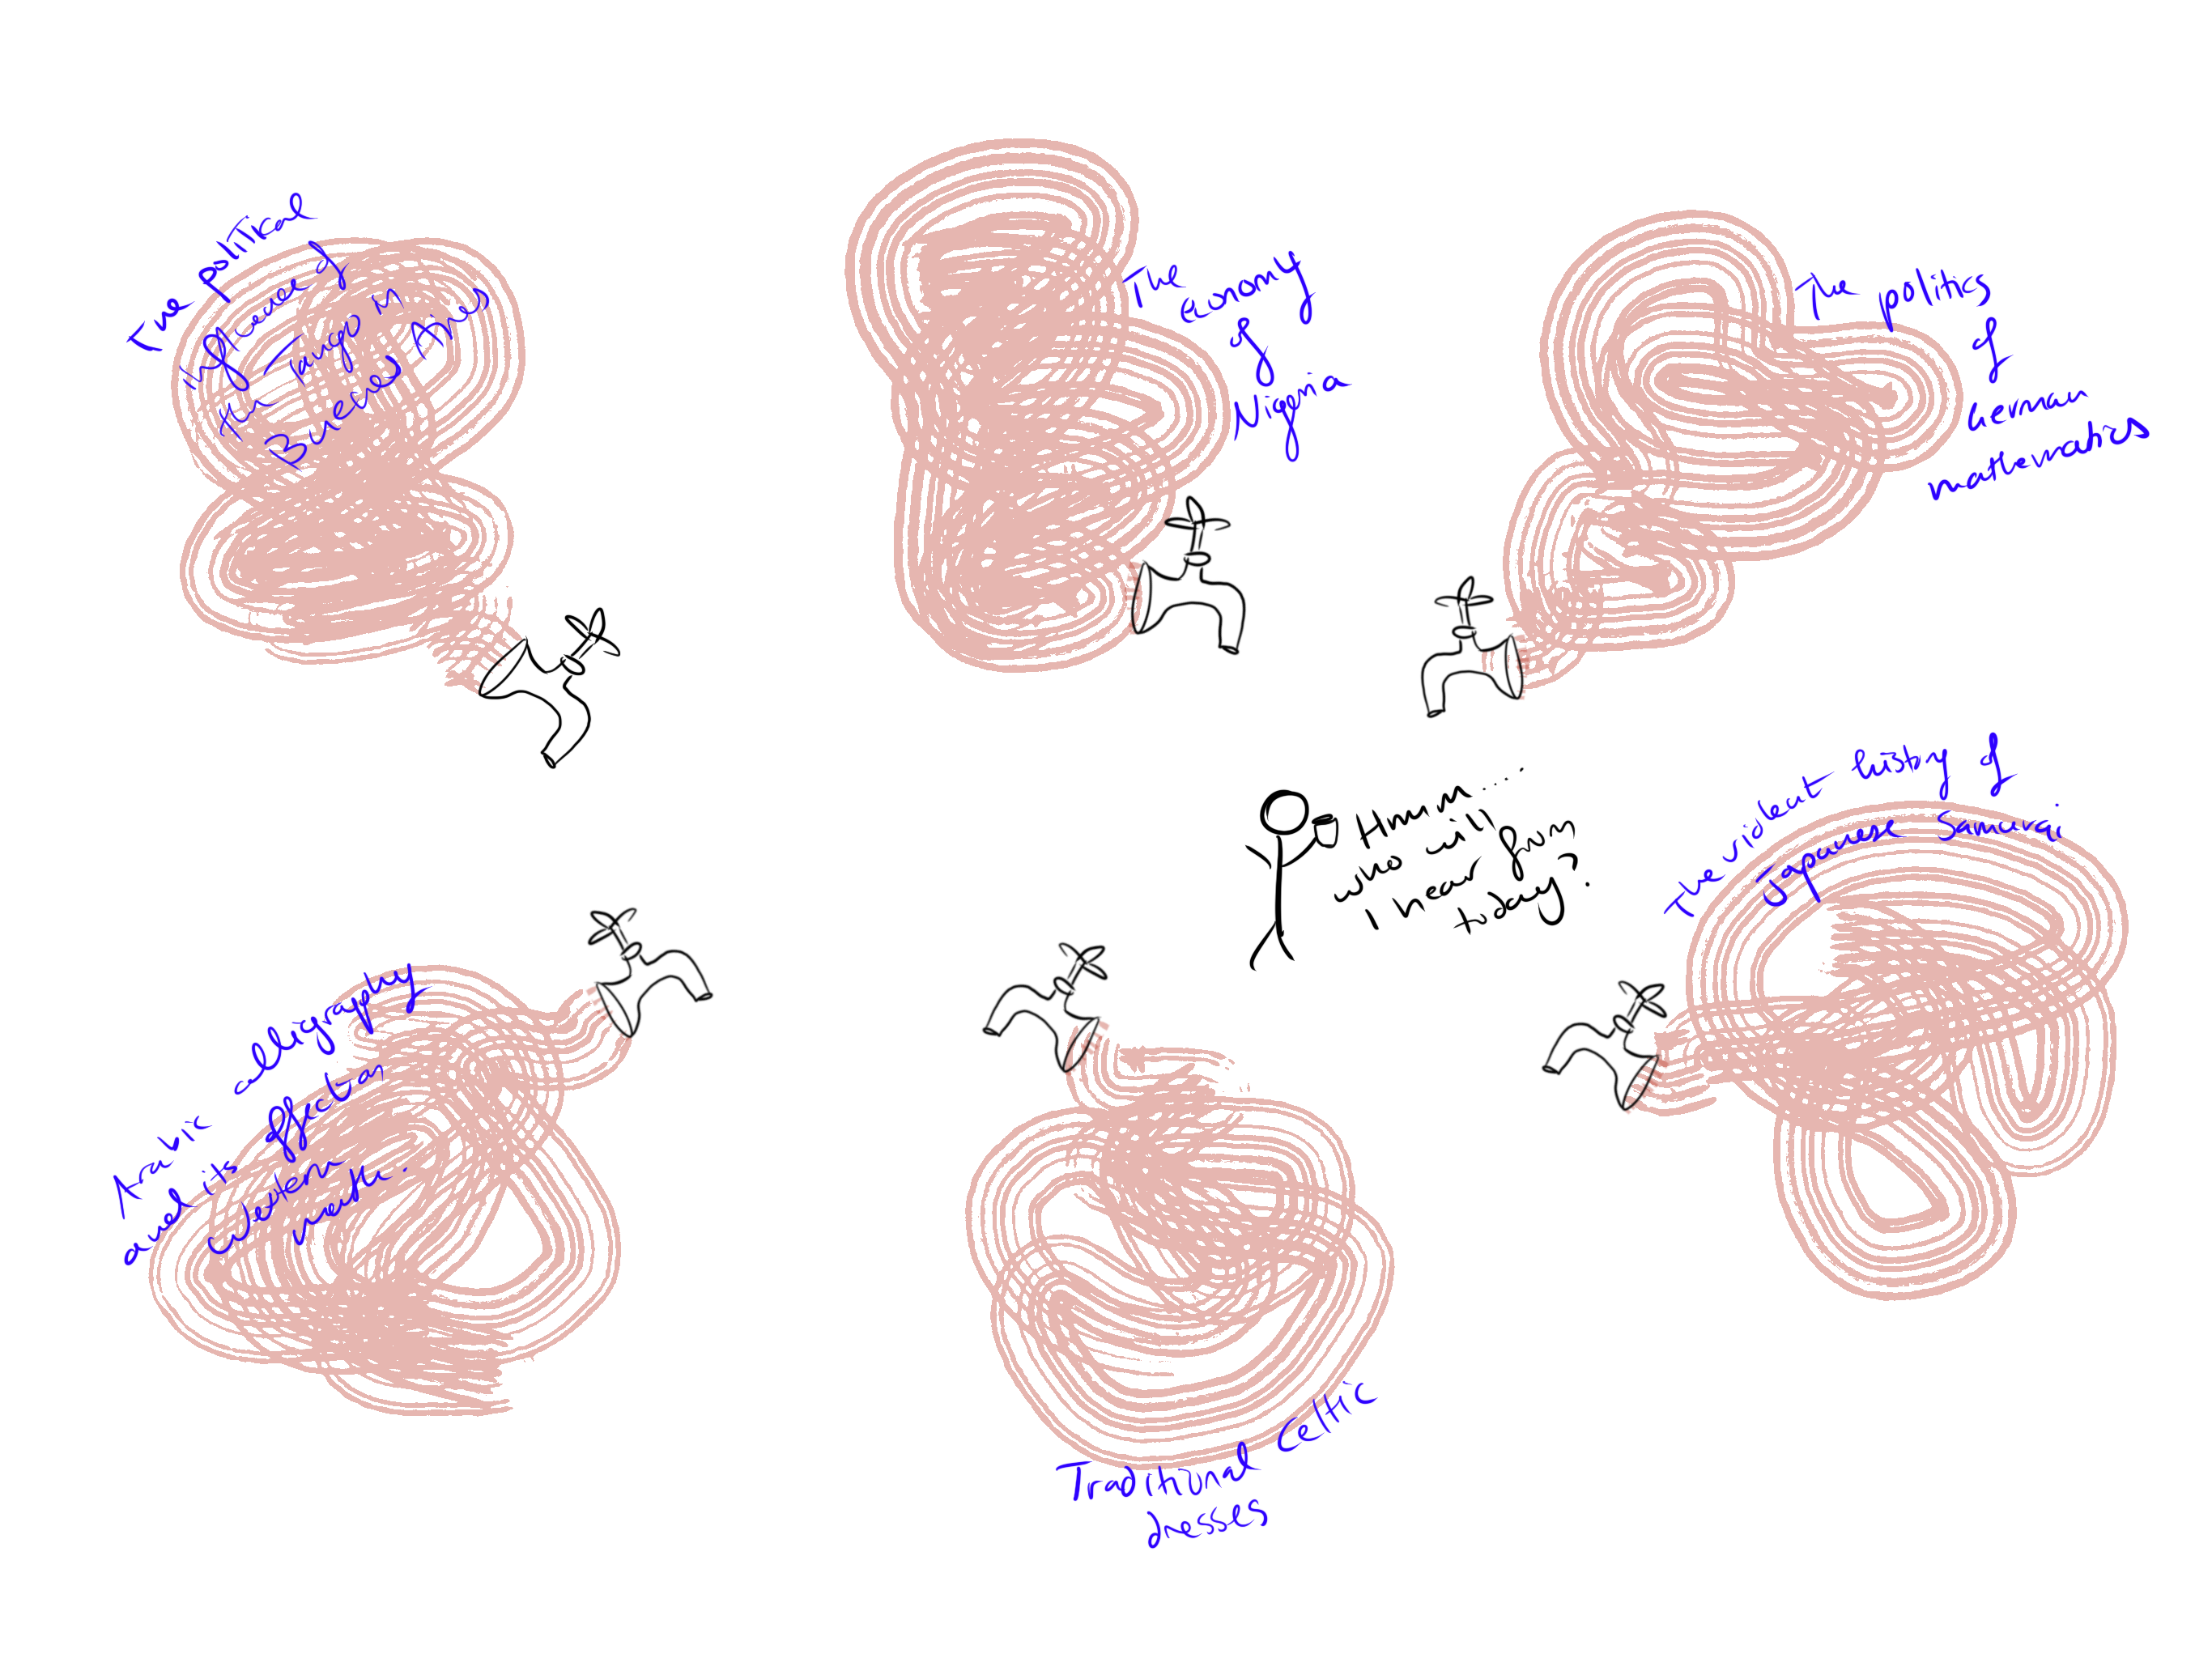 The political
influence of
the Tango in
Buenos Aires
The
economy
of
Nigeria
The politics
of
German
mathematics
Hmm.....
who will
I hear from
today?
The violent history of
Japanese Samurai
Arabic calligraphy
and its effect on
Western
math.
Traditional Celtic
dresses